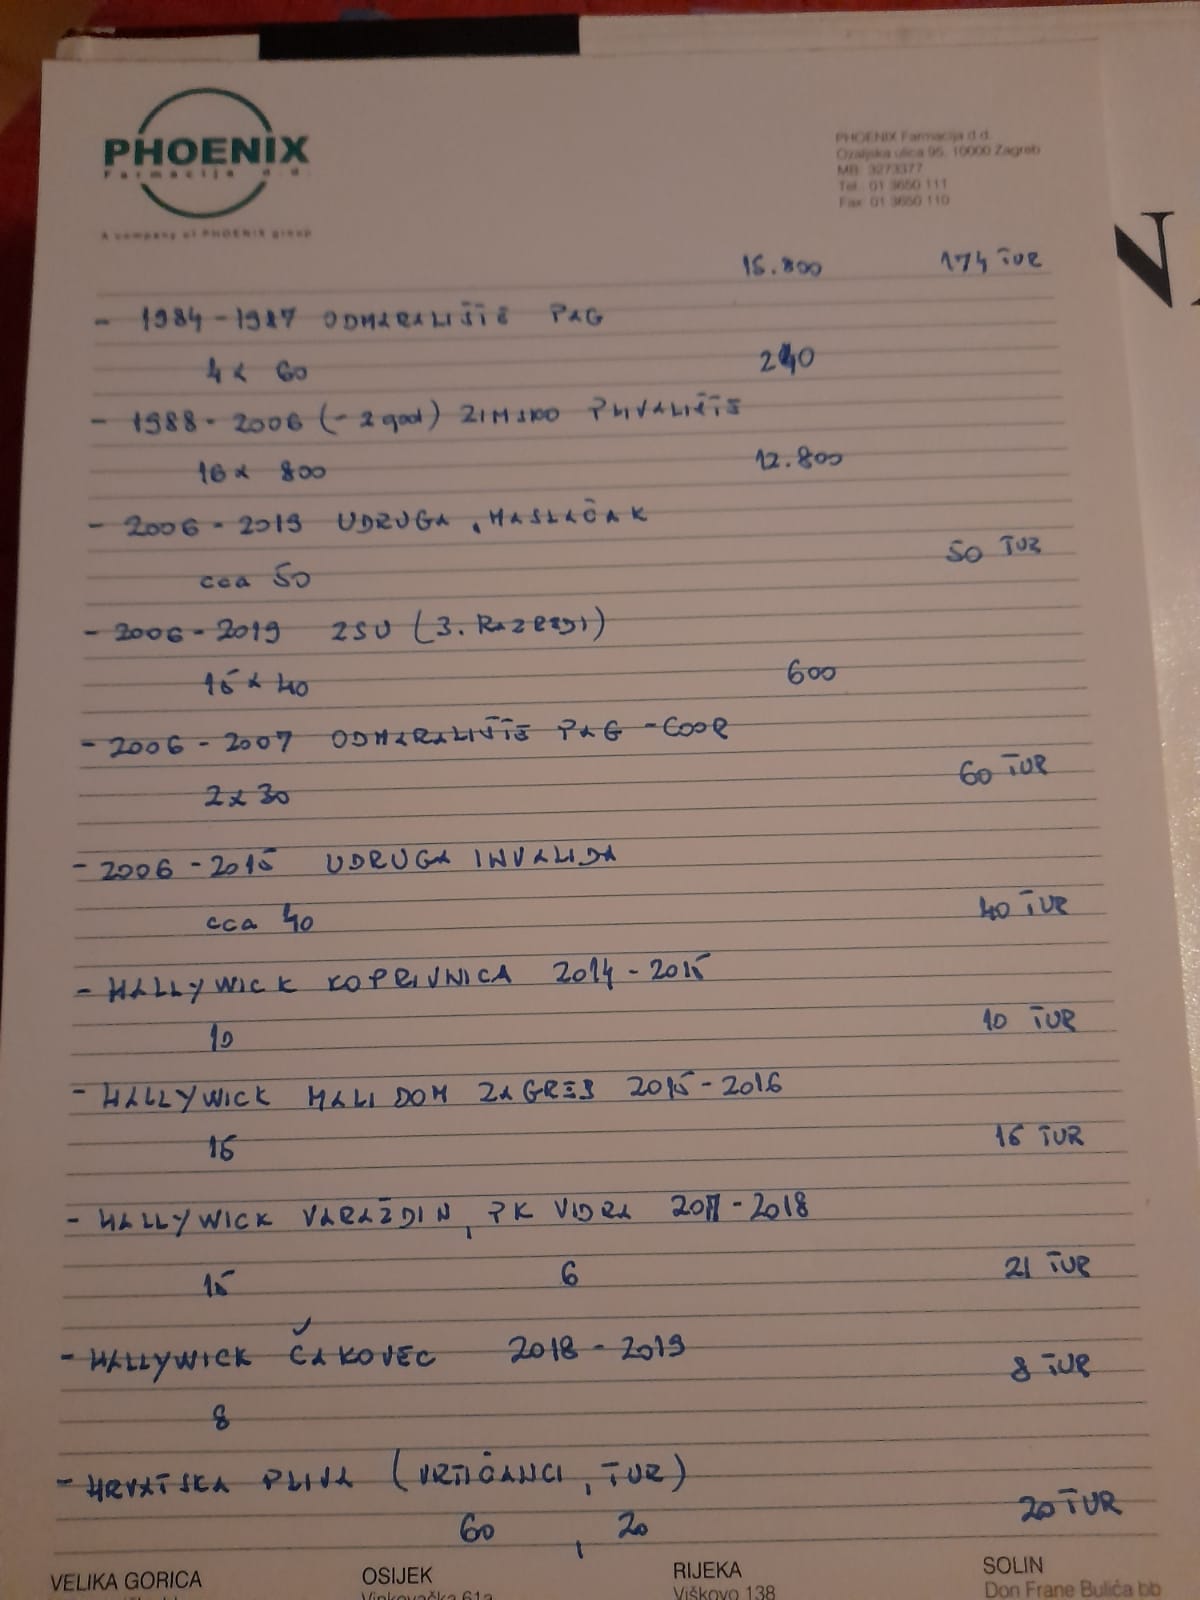 PHOENIX
Farmacija d.d.
A company of PHOENIX group
PHOENIX Farmacija d.d.
Ozaljska ulica 95, 10000 Zagreb
MB: 3273377
Tel.: 01 3650 111
Fax: 01 3650 110
15.800 174 TUR
- 1984 - 1987 ODMARALIŠTE PAG
4 x 60 240
- 1988 - 2006 (- 2 god) ZIMSKO PLIVALIŠTE
16 x 800 12.800
- 2006 - 2019 UDRUGA "MASLAČAK
cca 50 50 TUR
- 2006 - 2019 ZSU (3. RAZREDI)
15 x 40 600
- 2006 - 2007 ODMARALIŠTE PAG - COOR
2 x 30 60 TUR
- 2006 - 2015 UDRUGA INVALIDA
cca 40 40 TUR
- HALLYWICK KOPRIVNICA 2014 - 2015
10 10 TUR
- HALLYWICK MALI DOM ZAGREB 2015 - 2016
15 15 TUR
- HALLYWICK VARAŽDIN, PK VIDRA 2017 - 2018
15 6 21 TUR
- HALLYWICK ČAKOVEC 2018 - 2019
8 8 TUR
- HRVATSKA PLIVA (VRTIĆANCI, TUR)
60, 20 20 TUR
VELIKA GORICA OSIJEK RIJEKA SOLIN
Vinkovačka 61a Viškovo 138 Don Frane Bulića bb
N